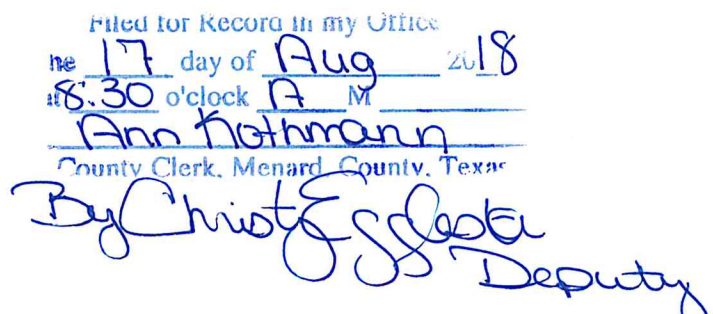 Filed for Record in my Office
he 17 day of Aug 2018
at 8:30 o'clock A M
Ann Kothmann
County Clerk, Menard County, Texas
By Christy Eggleston
Deputy